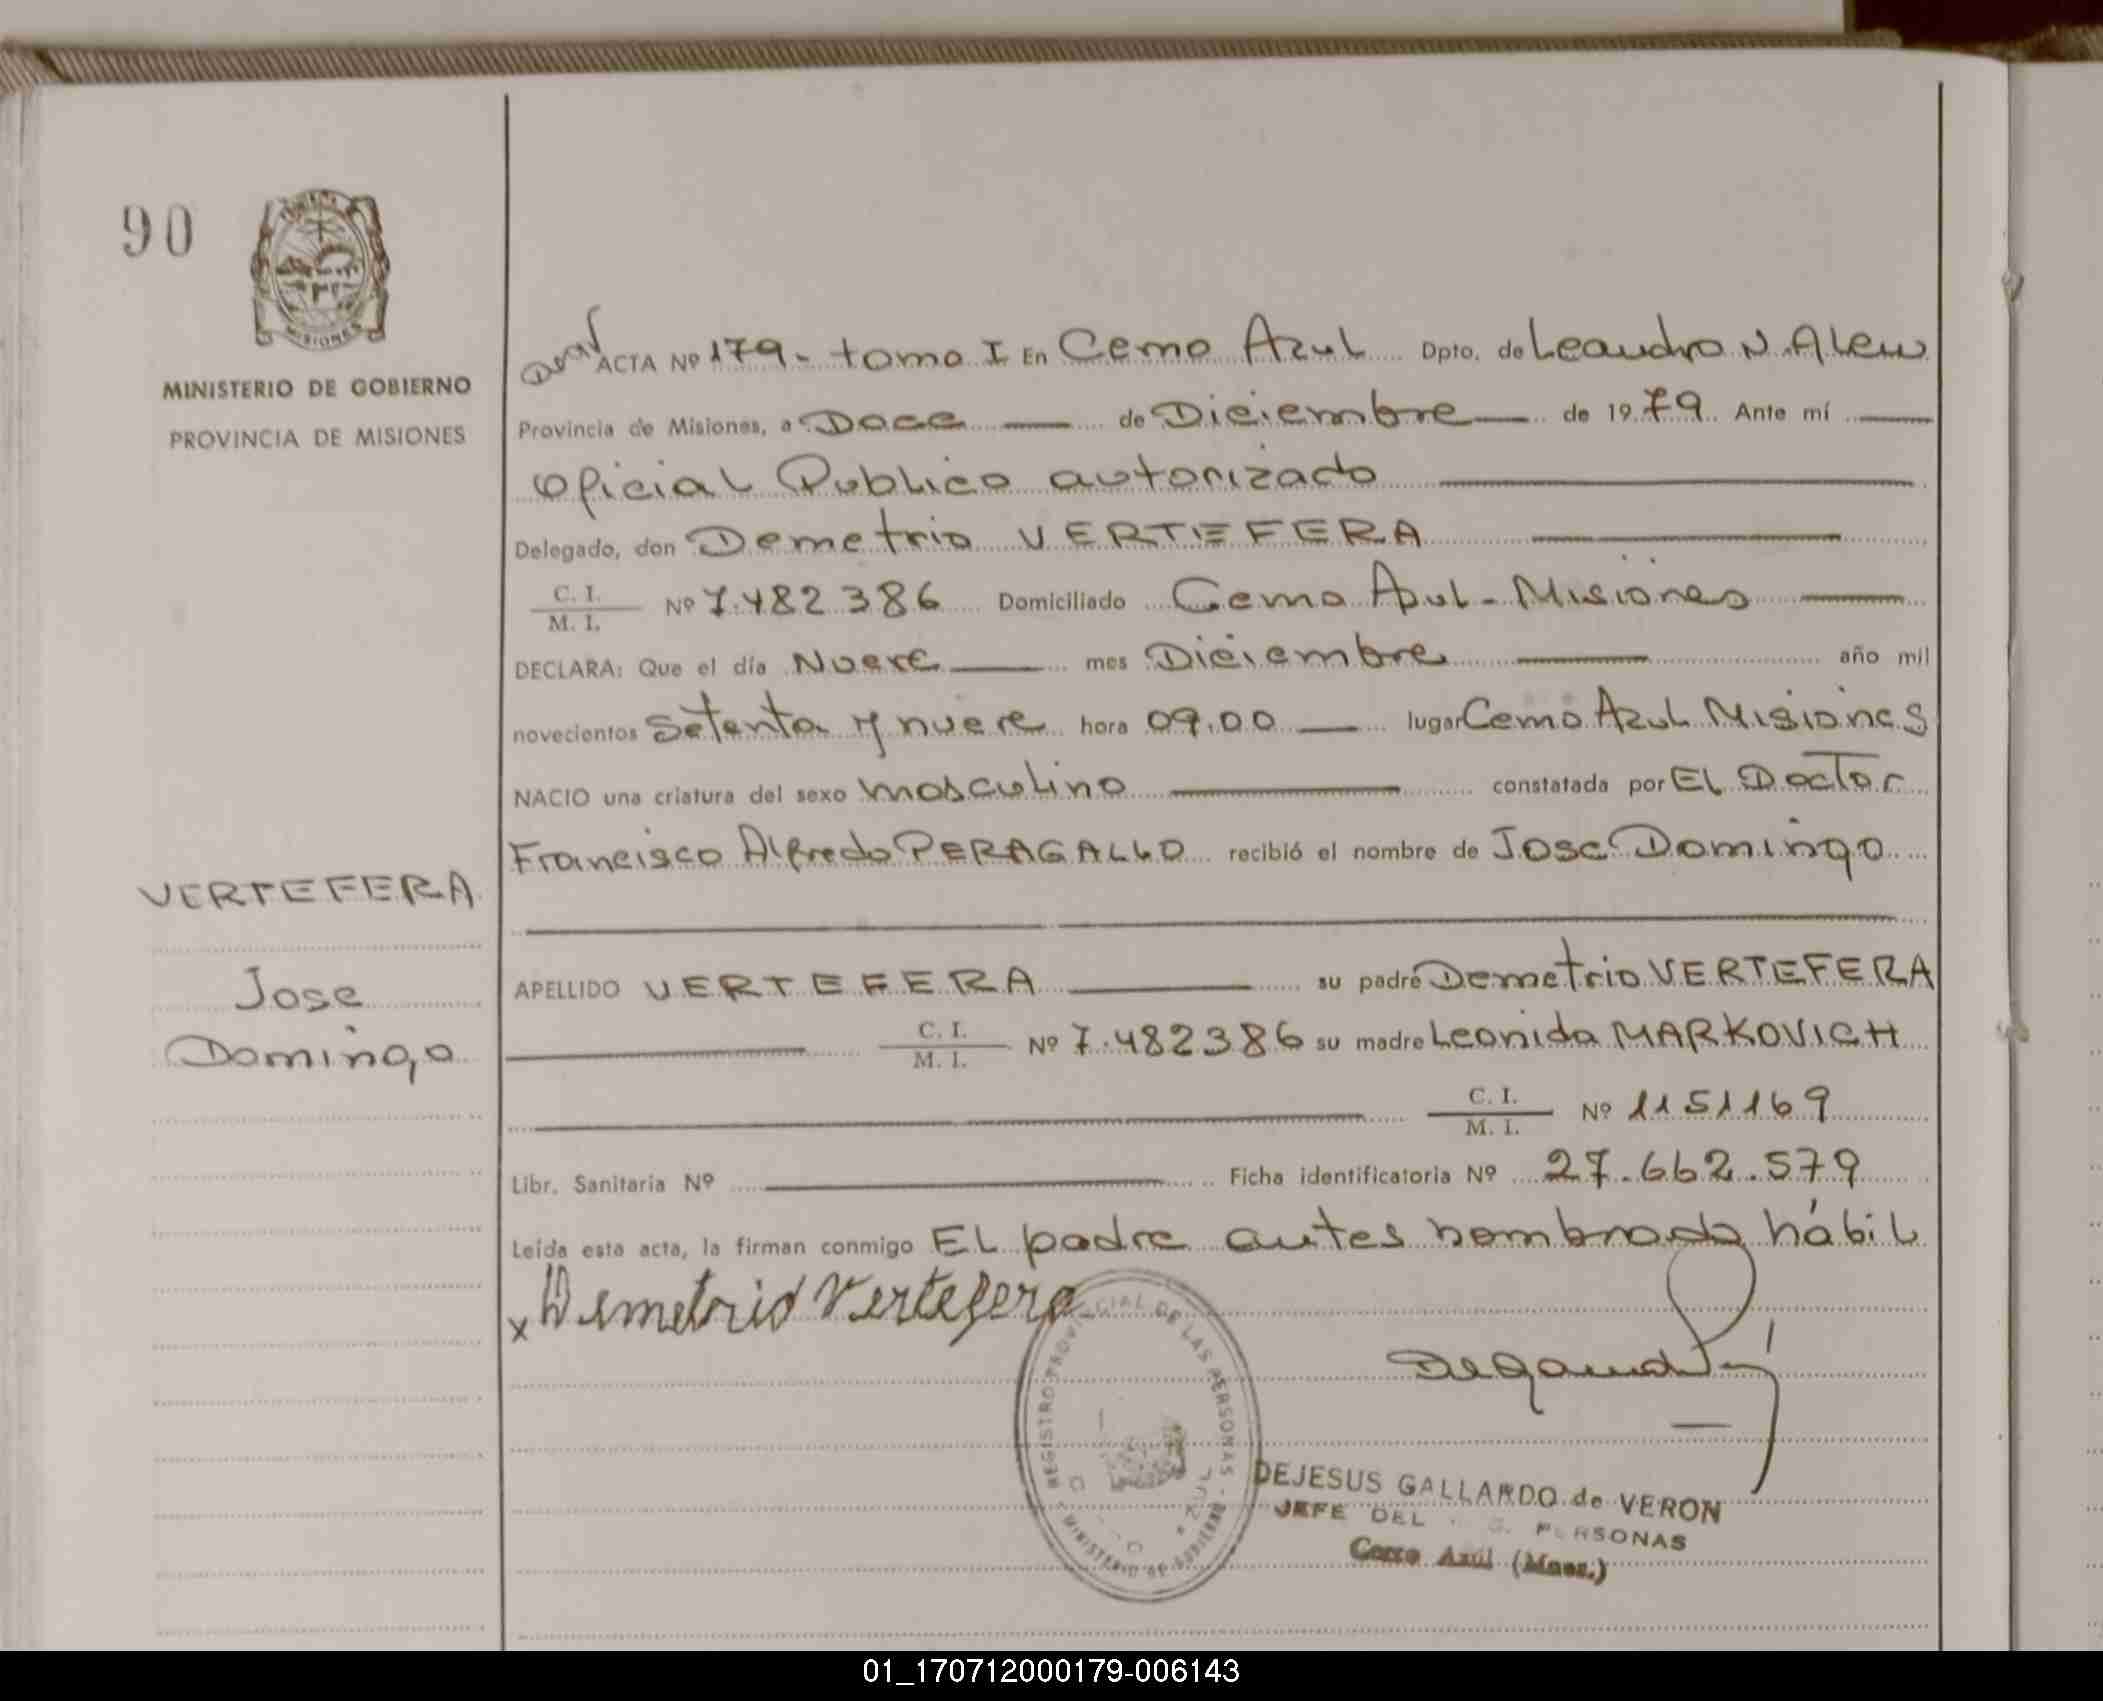 90
MINISTERIO DE GOBIERNO
PROVINCIA DE MISIONES
ACTA Nº 179- tomo I En Cerro Azul Dpto. de Leandro N. Alem
Provincia de Misiones, a Doce de Diciembre de 1979 Ante mí
Oficial Publico autorizado
Delegado, don Demetrio VERTEFERA
C. I.
M. I.
Nº 7.482386 Domiciliado Cerro Azul-Misiones
DECLARA: Que el día Nueve mes Diciembre año mil
novecientos Setenta y nueve hora 09.00 lugar Cerro Azul Misiones
NACIO una criatura del sexo masculino constatada por EL Doctor
Francisco Alfredo PERAGALLO recibió el nombre de Jose Domingo
VERTEFERA
Jose
Domingo
APELLIDO VERTEFERA su padre Demetrio VERTEFERA
C. I.
M. I.
Nº 7.482386 su madre Leonida MARKOVICH
C. I.
M. I.
Nº 1151169
Libr. Sanitaria Nº Ficha identificatoria Nº 27.662.579
Leída esta acta, la firman conmigo EL padre antes nombrado hábil
x Demetrio Vertefera
REGISTRO PROVINCIAL DE LAS PERSONAS - MINISTERIO DE GOBIERNO
DEJESUS GALLARDO de VERON
JEFE DEL PERSONAS
Cerro Azul (Mnes.)
MISIONES
01_170712000179-006143